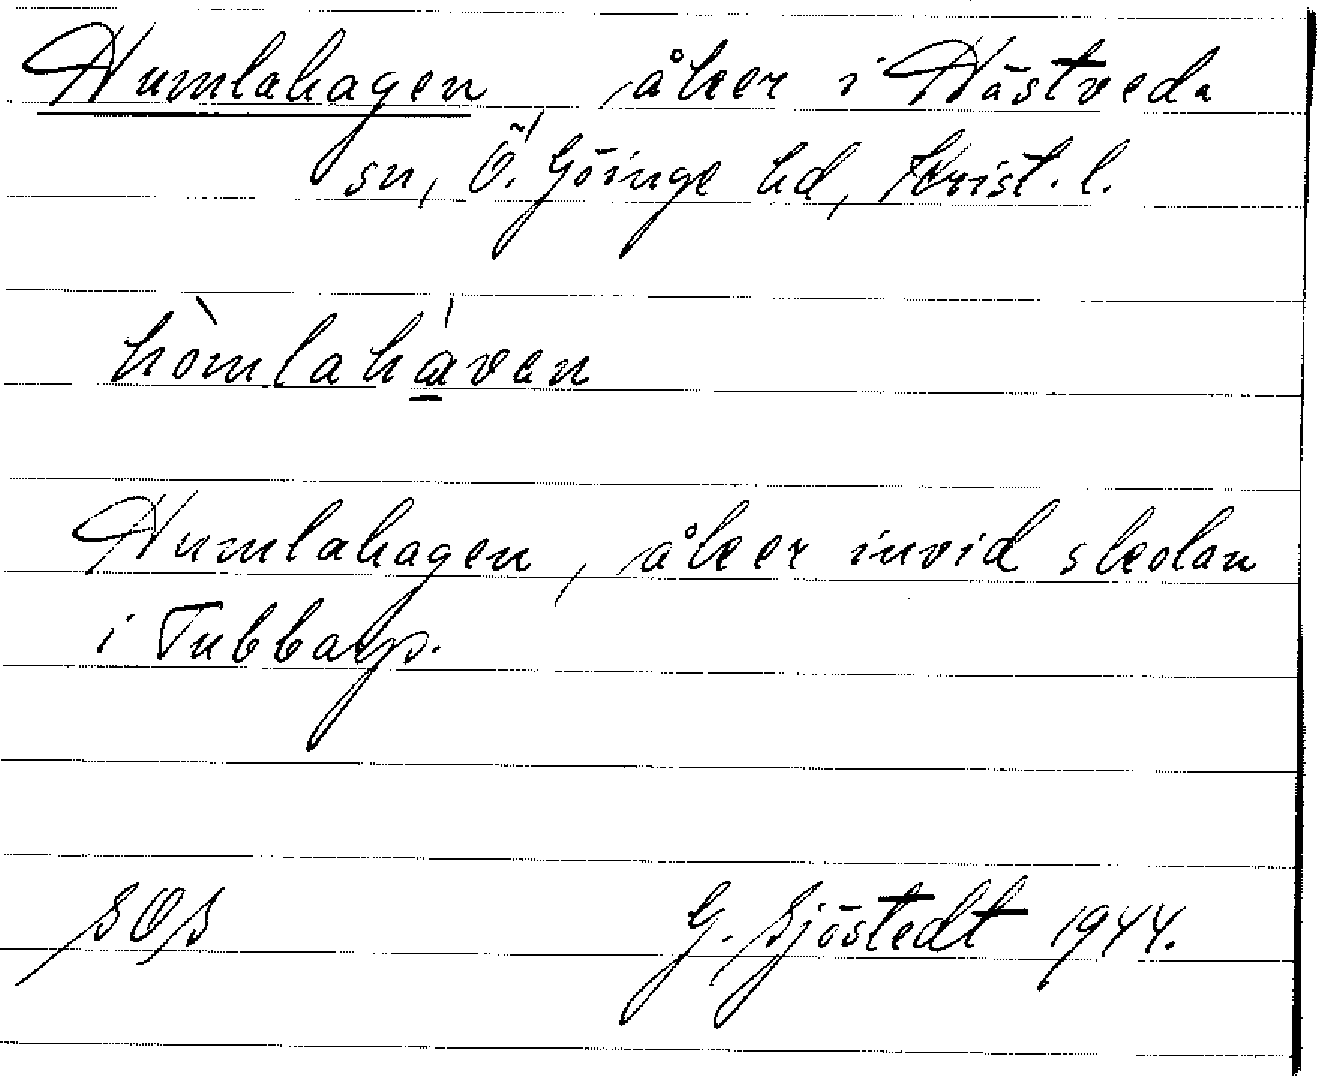 Humlahagen åker i Hästveda
sn, Ö. Göinge hd, Krist. l.
hòmlahá̱ven
Humlahagen, åker invid skolan
i Tubbarp.
SOS G. Sjöstedt 1944.